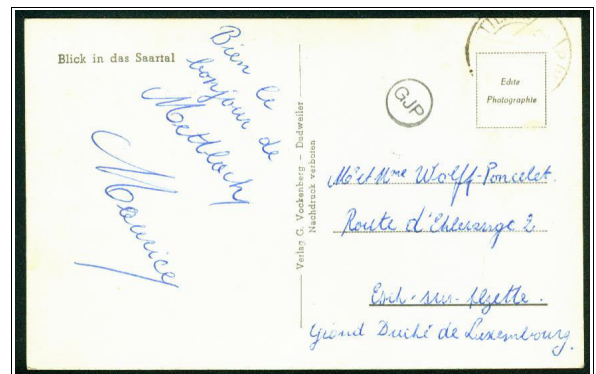 Blick in das Saartal
Bien le
bonjour de
Mettlach
Maurice
Verlag G. Vockenberg – Dudweiler
Nachdruck verboten
GJP
Echte
Photographie
Mr et Mme Wolff-Poncelet.
Route d'Ehlerange 2
Esch-sur-Alzette.
Grand Duché de Luxembourg.